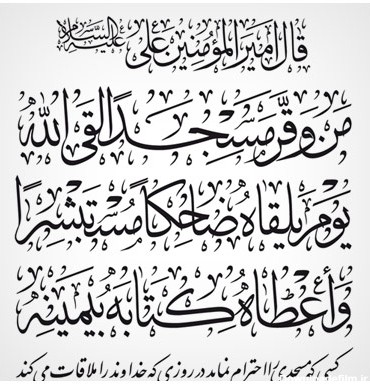 قَالَ اَمِيرُ المُؤْمِنِين عَلَي عَلَيْهِ السَّلَام
مَنْ وَقَّرَ مَسْجِداً لَقَى اللهَ
يَوْمَ يَلْقَاهُ ضَاحِكاً مُسْتَبْشِراً
وَأَعْطَاهُ كِتَابَهُ بِيَمِينِهِ
کسی که مسجدی را احترام نماید در روزی که خداوند را ملاقات می کند